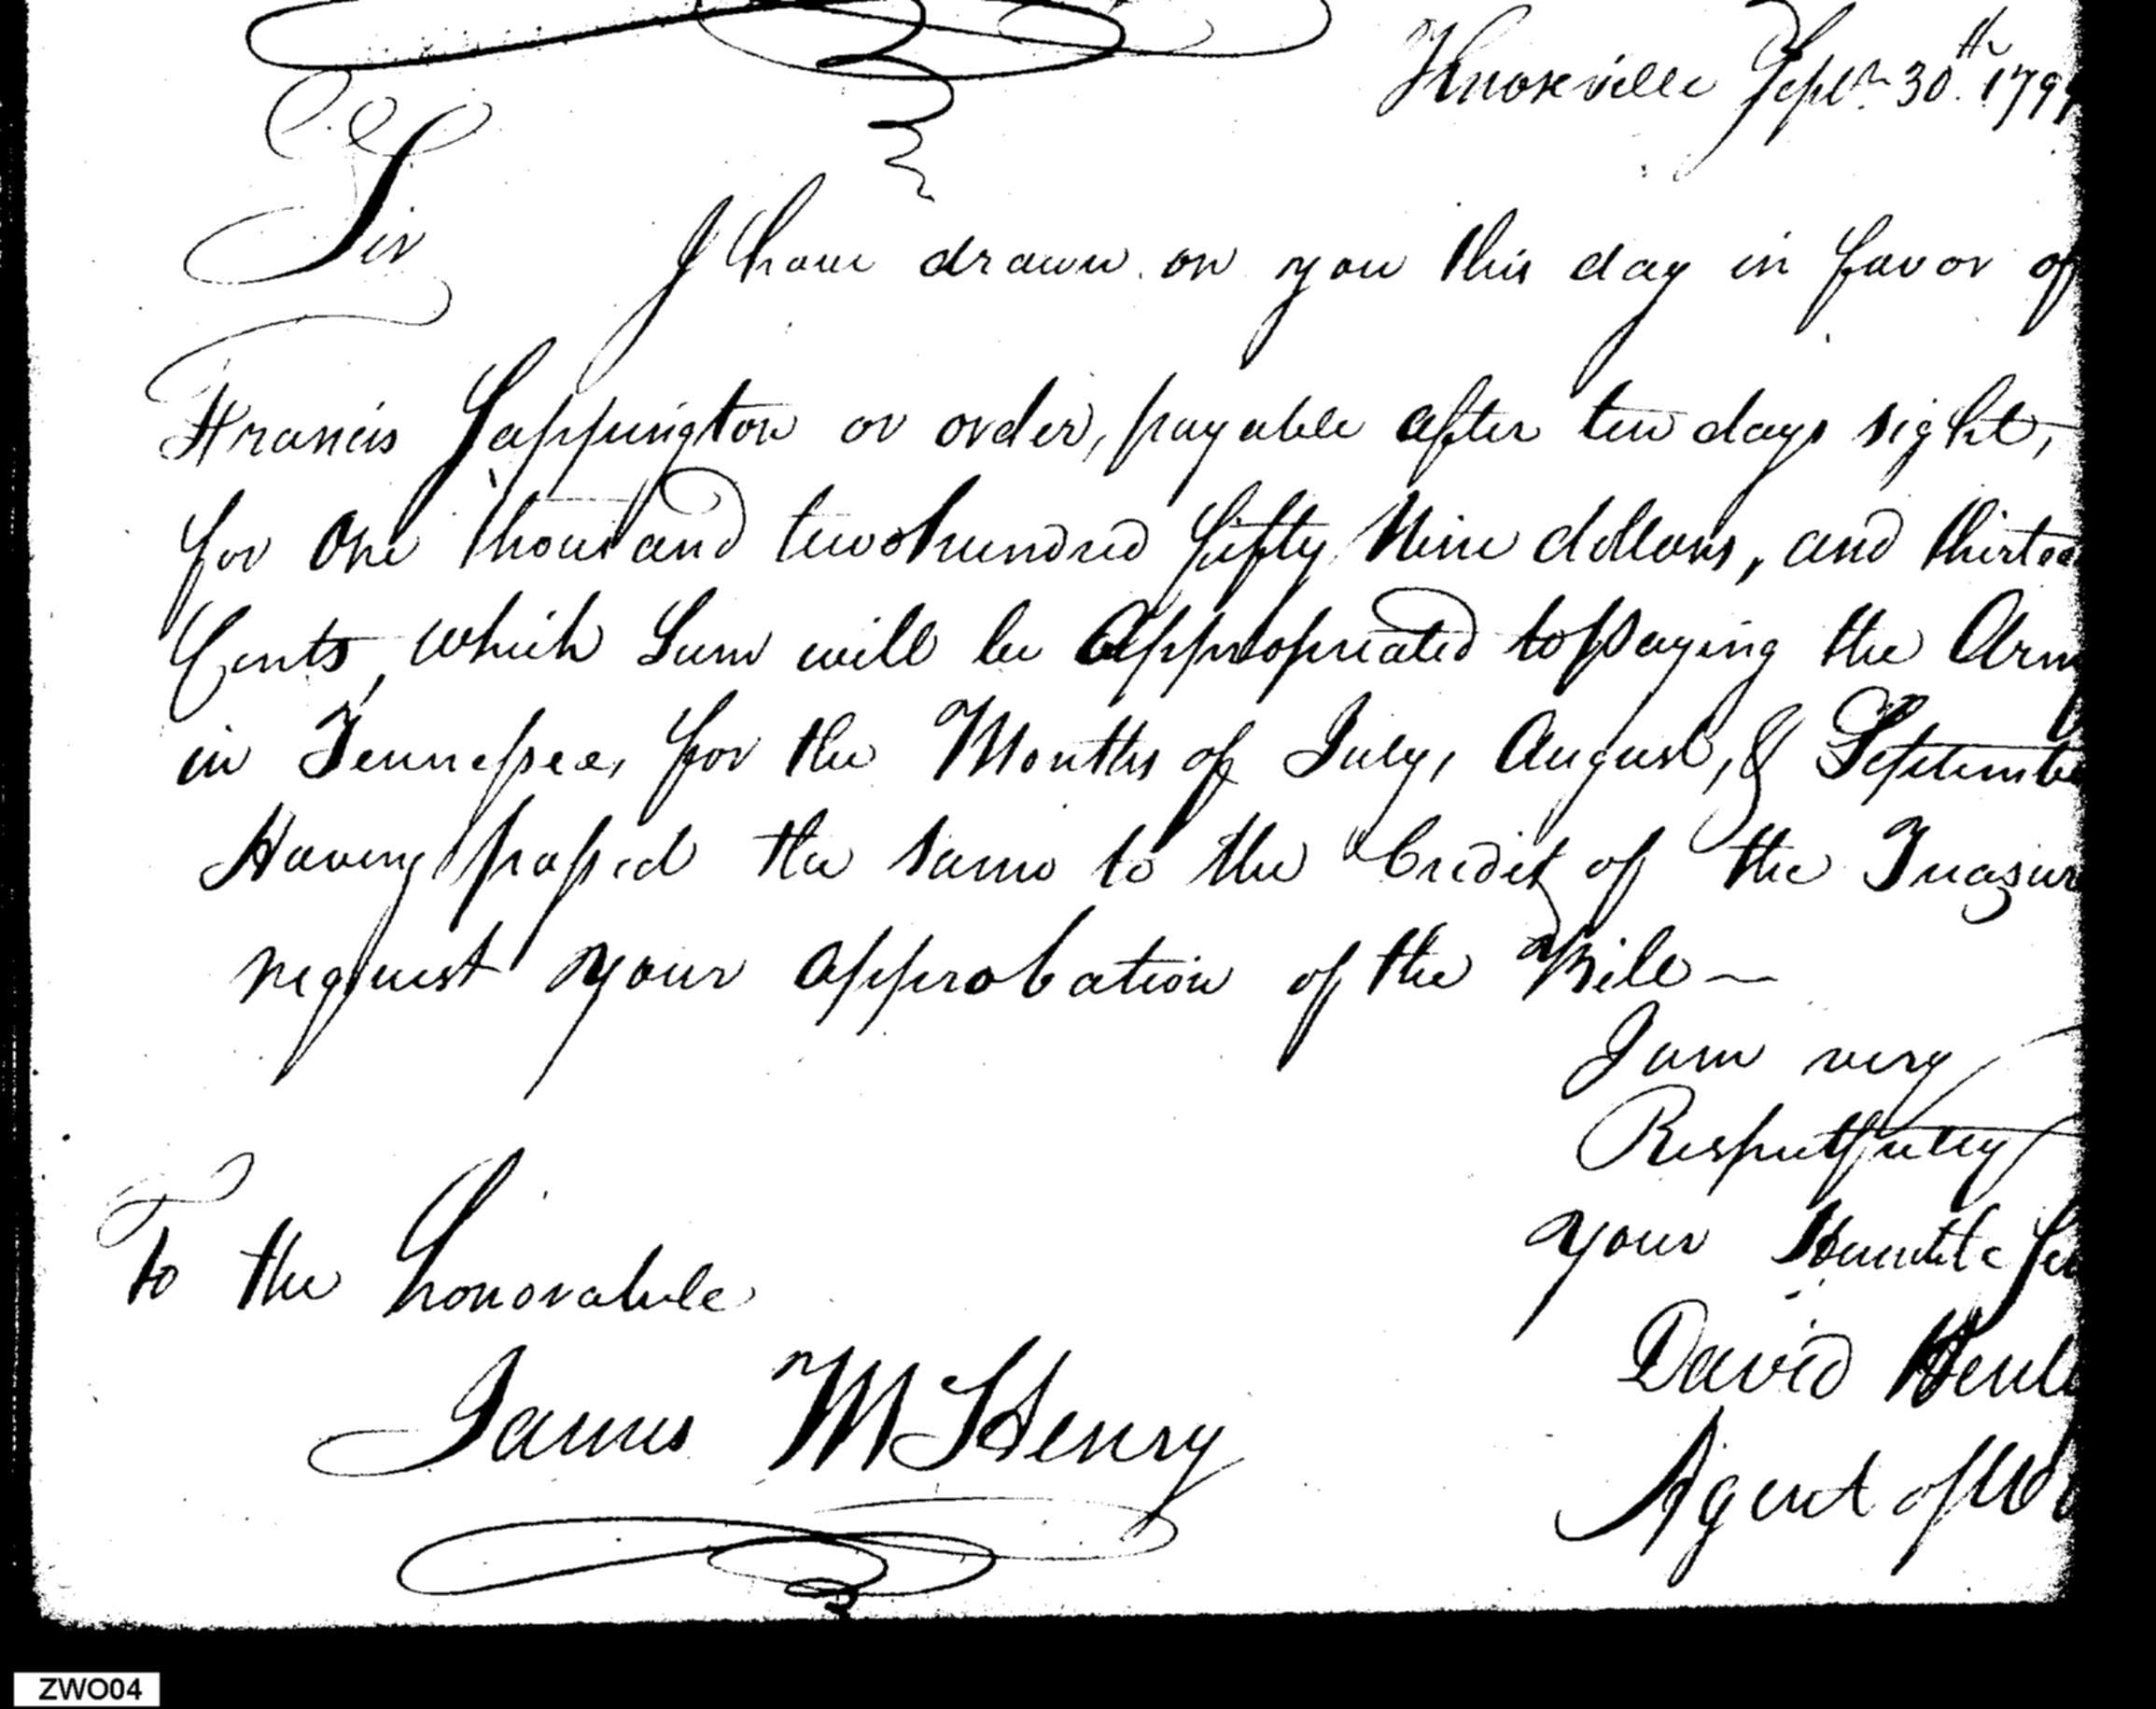 Knoxville Septr. 30th. 179
Sir
I have drawn on you this day in favor of
Francis Sappington or order, payable after ten days sight,
for One thousand two hundred fifty Nine dollars, and thirtee
Cents, which Sum will be Appropriated to paying the Arm
in Tennessee, for the Months of July, August, & Septembe
Having passed the same to the Credit of the Treasur
request your approbation of the Bill —
I am very
Respectfully
your Humble Se
To the honorable
David Henl
James McHenry
Agent of W
ZWO04